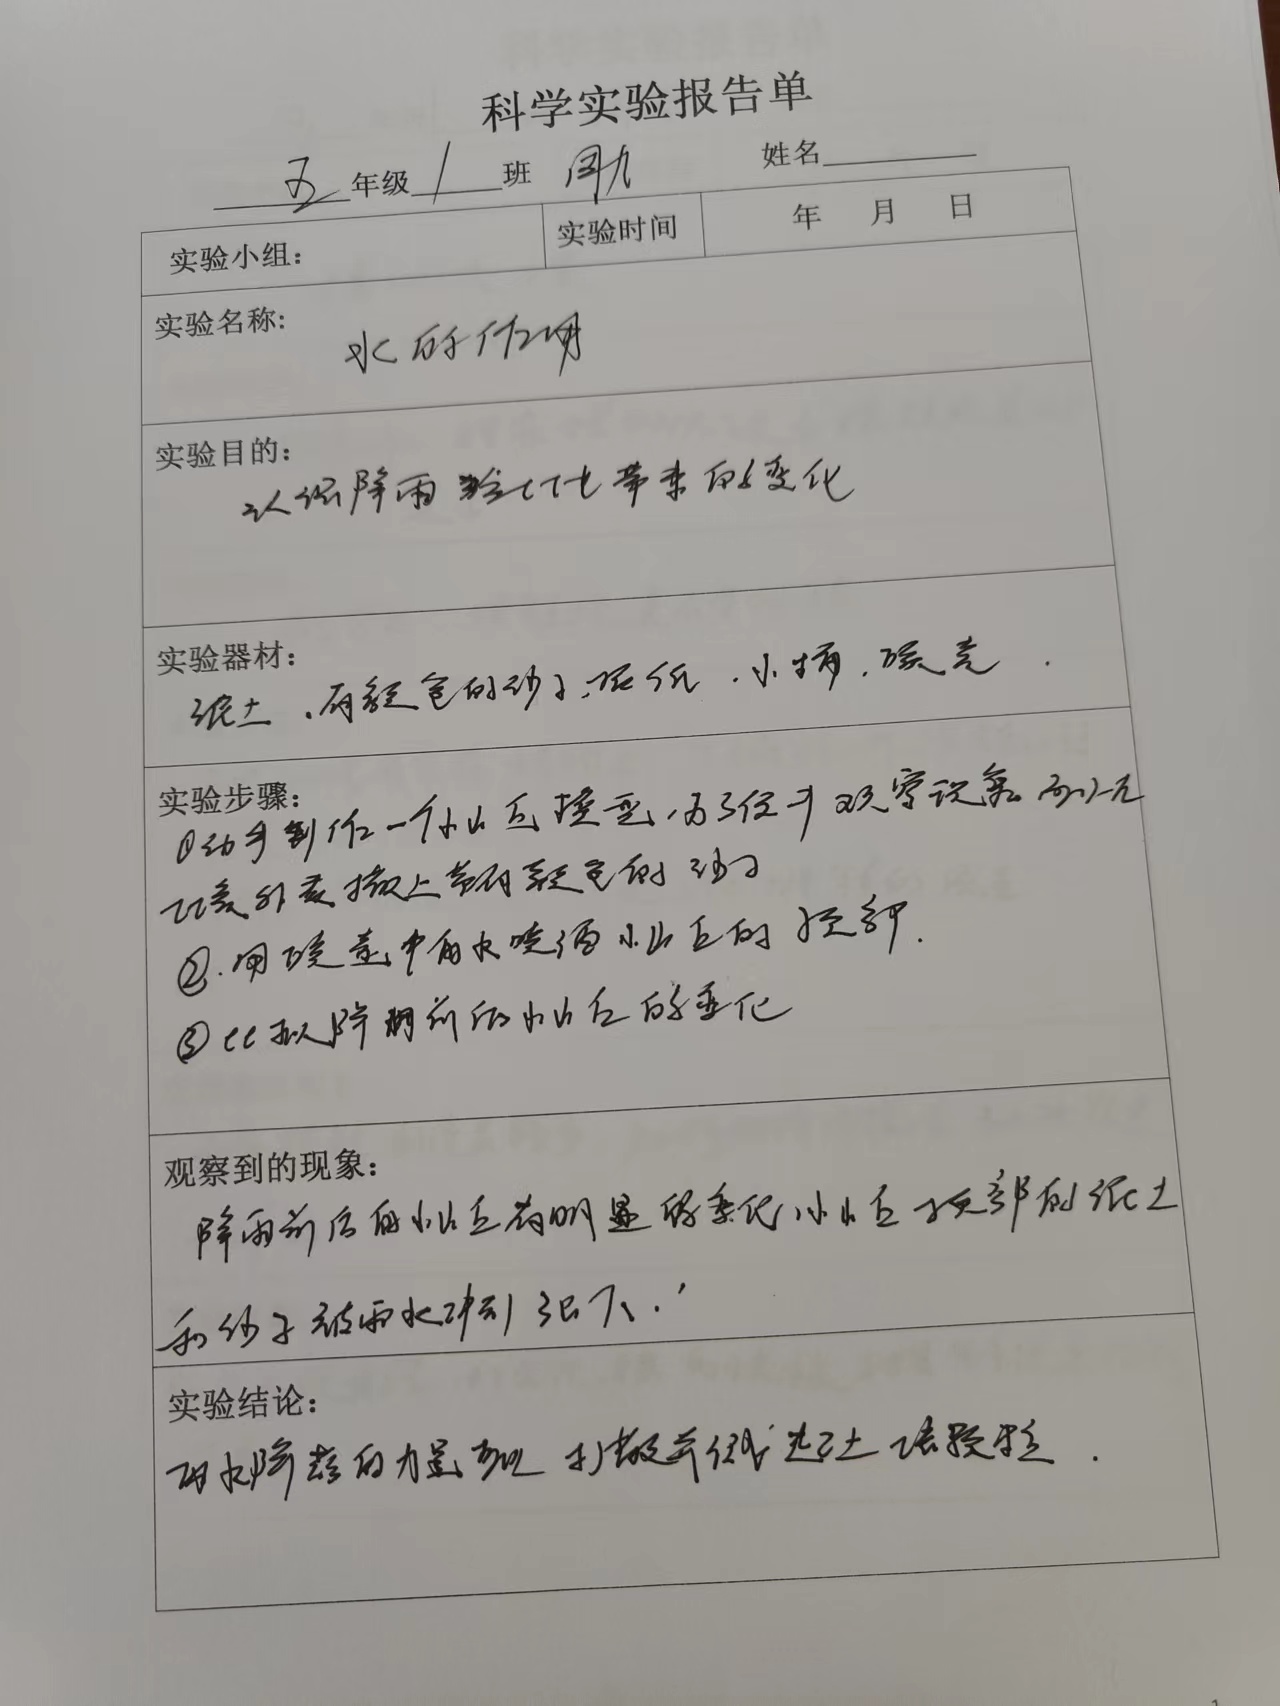 科学实验报告单
五年级 1 班 姓名
实验小组： 实验时间 年 月 日
实验名称:
水的作用
实验目的：
认识降雨给土地带来的变化
实验器材：
泥土、有颜色的沙子、报纸、小桶、喷壶.
实验步骤：
①动手制作一个小山丘模型,为了便于观察现象可以在
山丘外表撒上带有颜色的沙子
②.用喷壶中的水喷洒小山丘的顶部.
③比拟降雨前后小山丘的变化
观察到的现象：
降雨前后的小山丘有明显的变化,小山丘顶部的泥土
和沙子被雨水冲刷 下.
实验结论：
雨水降落的力量 打散并 土 颗粒.